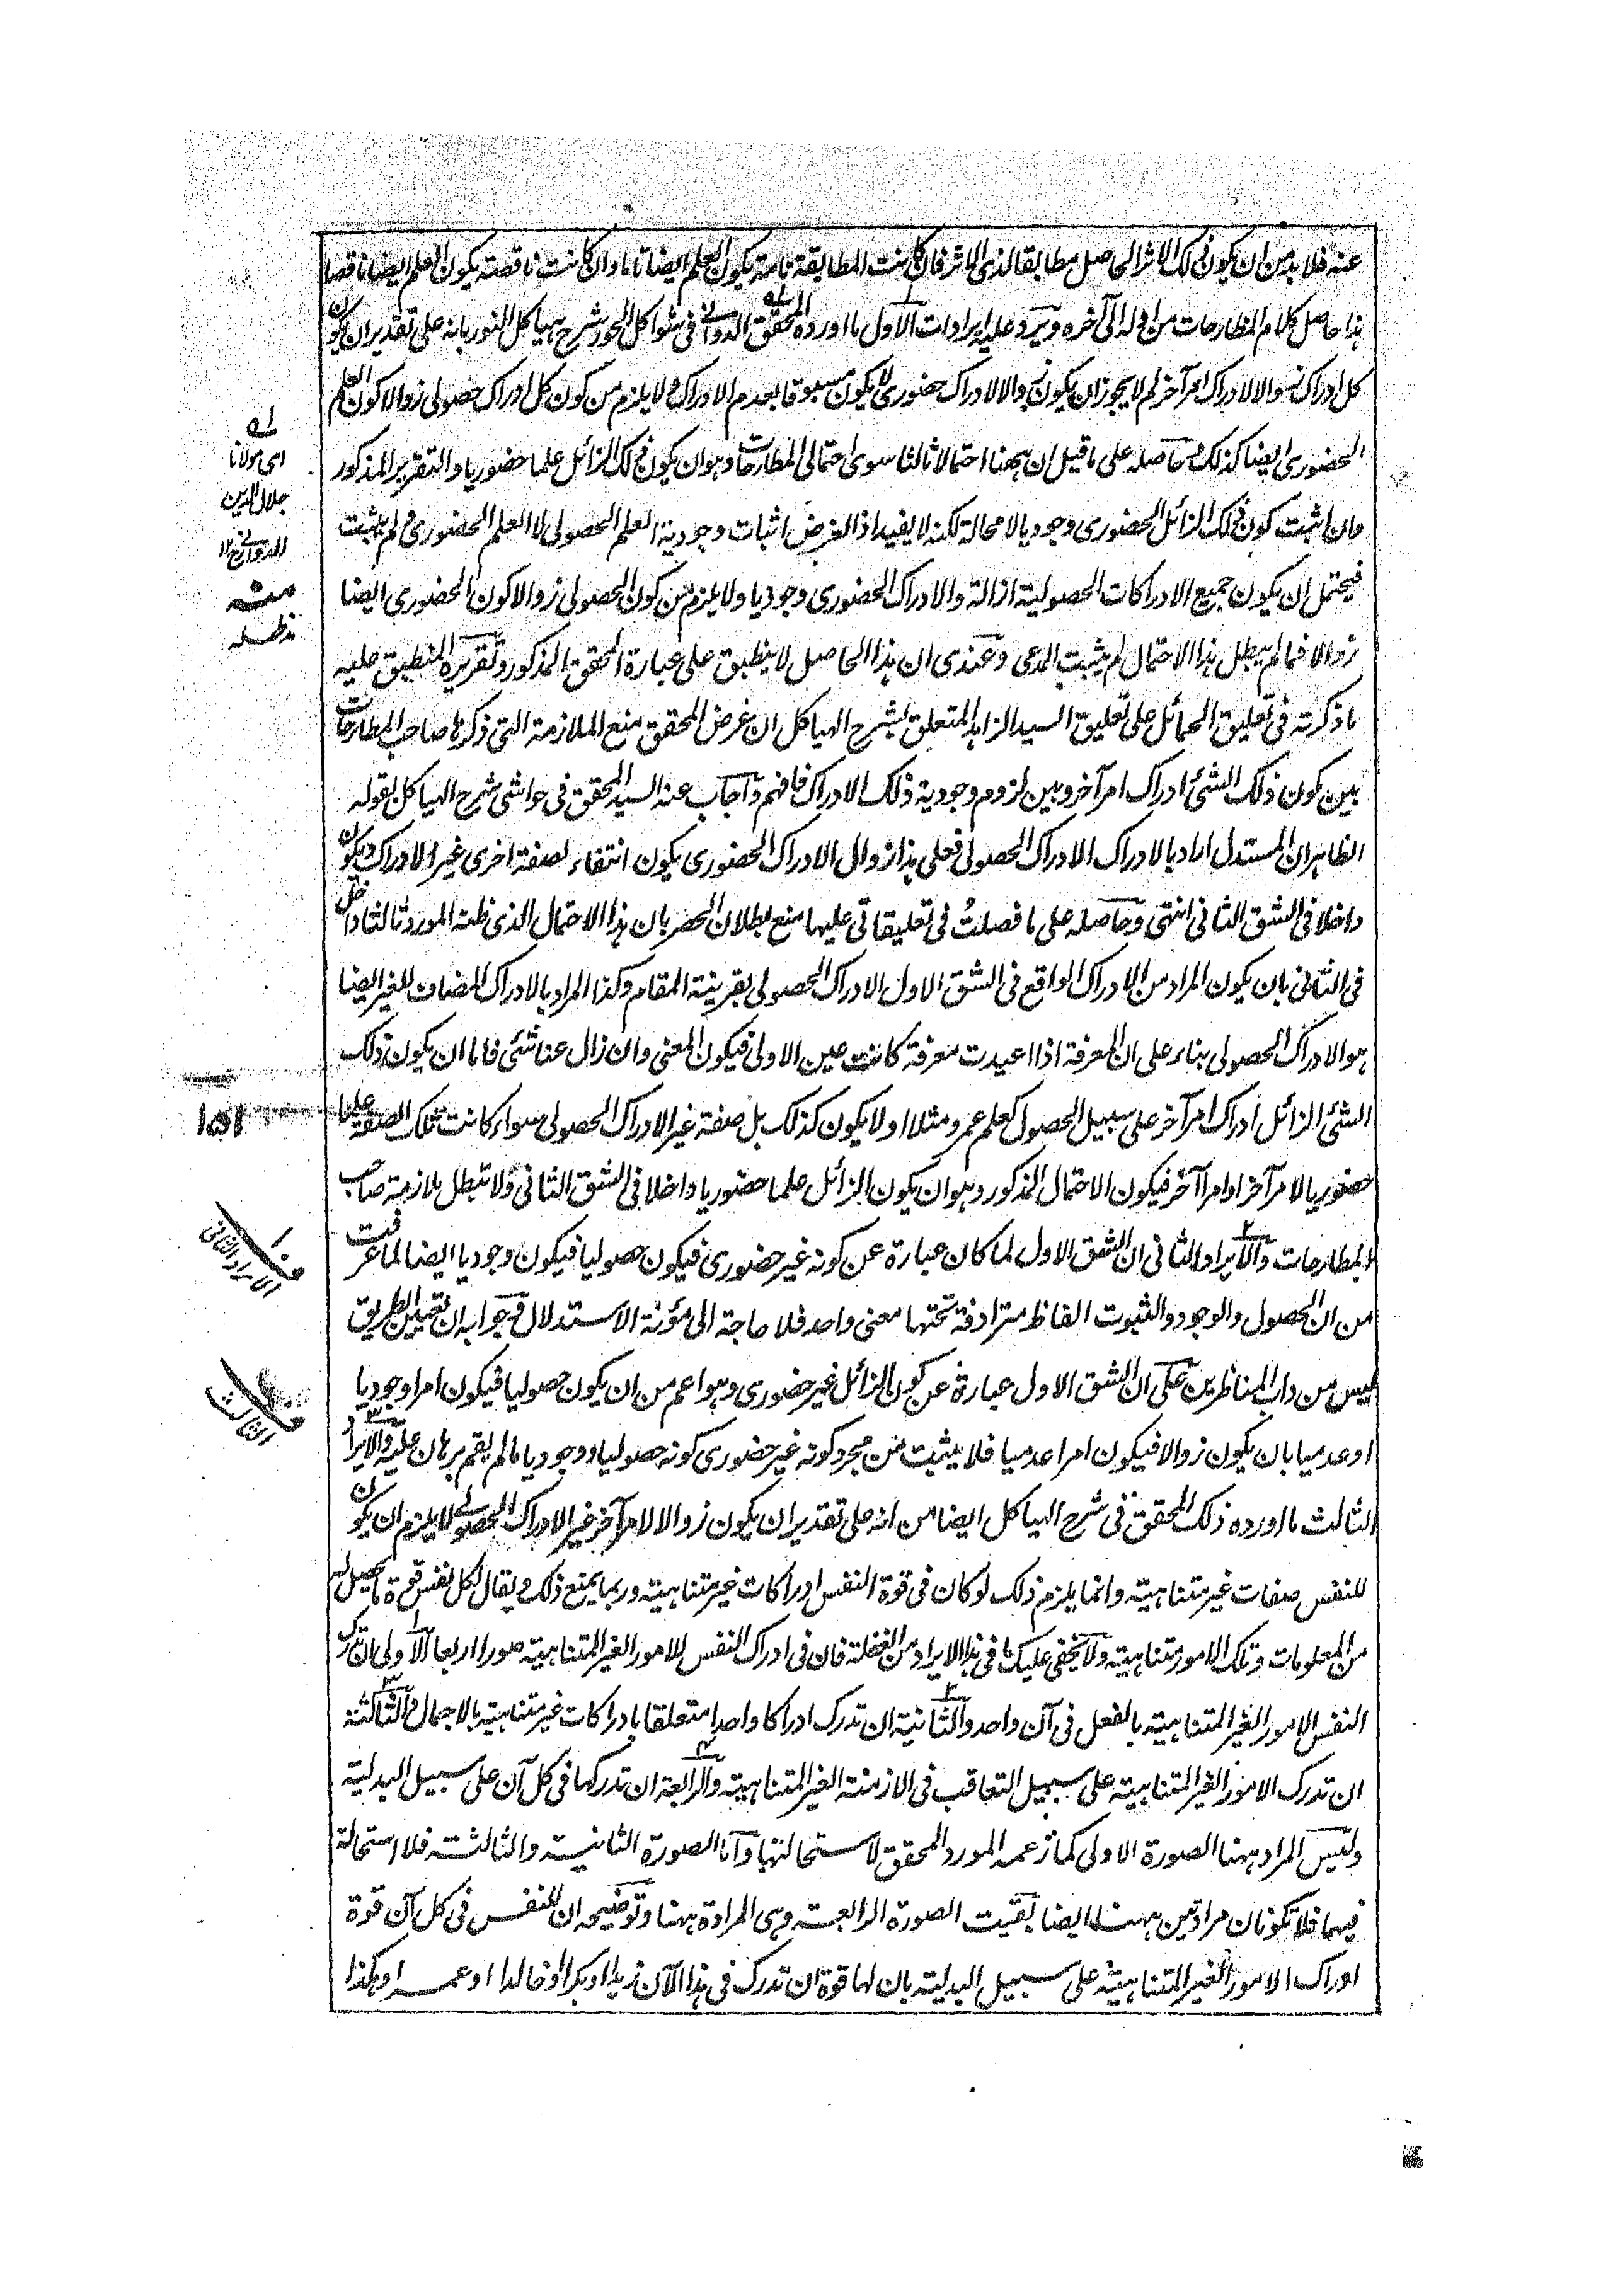 عنه فلا بد من ان يكون ذلك الاثر الحاصل مطابقا لذى الاثر فان كانت المطابقة تامة يكون العلم ايضا تاما وان كانت ناقصة يكون العلم ايضا ناقصا
هذا حاصل كلام المطارحات من اوله الى آخره ويرد عليه ايرادات الاول ما اورده المحقق الدوانى فى شواكل الحور شرح هياكل النور بانه على تقدير ان يكون
كل ادراك زوالا لادراك امر آخر لم لا يجوز ان يكون زوالا لادراك حضورى لا يكون مسبوقا بعدم الادراك ولا يلزم من كون كل ادراك حصولى زوالا كون العلم
الحضورى ايضا كذلك وحاصله على ما قيل ان ههنا احتمالا ثالثا سوى احتمالى المطارحات وهو ان يكون ذلك الزائل علما حضوريا والتقرير المذكور
وان اثبت كون ذلك الزائل الحضورى وجوديا لا محالة لكنه لا يفيد اذ الغرض اثبات وجودية العلم الحصولى لا العلم الحضورى ولم يثبت
فيحتمل ان يكون جميع الادراكات الحصولية ازالة والادراك الحضورى وجوديا ولا يلزم من كون الحصولى زوالا كون الحضورى ايضا
زوالا فما لم يبطل هذا الاحتمال لم يثبت المدعى وعندى ان هذا الحاصل لا ينطبق على عبارة المحقق المذكور وتقريره المنطبق عليه
ما ذكرته فى تعليق الحمائل على تعليق السيد الزاهد المتعلق بشرح الهياكل ان غرض المحقق منع الملازمة التى ذكرها صاحب المطارحات
بين كون ذلك الشئ ادراك امر آخر وبين لزوم وجودية ذلك الادراك فافهم واجاب عنه السيد المحقق فى حواشى شرح الهياكل بقوله
الظاهر ان المستدل اراد بالادراك الادراك الحصولى فعلى هذا زوال الادراك الحضورى يكون انتفاء لصفة اخرى غير الادراك ويكون
داخلا فى الشق الثانى انتهى وحاصله على ما فصلت فى تعليقاتى عليها منع بطلان الحصر بان هذا الاحتمال الذى ظنه المورد ثالثا داخل
فى الثانى بان يكون المراد من الادراك الواقع فى الشق الاول الادراك الحصولى بقرينة المقام وكذا المراد بالادراك المضاف للغير ايضا
هو الادراك الحصولى بناء على ان المعرفة اذا اعيدت معرفة كانت عين الاولى فيكون المعنى وان زال عنا شئ فاما ان يكون ذلك
الشئ الزائل ادراك امر آخر على سبيل الحصول كعلم عمرو مثلا او لا يكون كذلك بل صفة غير الادراك الحصولى سواء كانت تلك الصفة علما
حضوريا لامر آخر او امرا آخر فيكون الاحتمال المذكور وهو ان يكون الزائل علما حضوريا داخلا فى الشق الثانى ولا تبطل ملازمة صاحب
المطارحات والايراد الثانى ان الشق الاول لما كان عبارة عن كونه غير حضورى فيكون حصوليا فيكون وجوديا ايضا لما عرفت
من ان الحصول والوجود والثبوت الفاظ مترادفة تحتها معنى واحد فلا حاجة الى مؤنة الاستدلال وجوابه ان تعيين الطريق
ليس من داب المناظرين على ان الشق الاول عبارة عن كون الزائل غير حضورى وهو اعم من ان يكون حصوليا فيكون امرا وجوديا
او عدميا بان يكون زوالا فيكون امرا عدميا فلا يثبت من مجرد كونه غير حضورى كونه حصوليا ووجوديا ما لم يقم برهان عليه والايراد
الثالث ما اورده ذلك المحقق فى شرح الهياكل ايضا من انه على تقدير ان يكون زوالا لامر آخر غير الادراك الحصولى لا يلزم ان يكون
للنفس صفات غير متناهية وانما يلزم ذلك لو كان فى قوة النفس ادراكات غير متناهية وربما يمنع ذلك ويقال لكل نفس قوة ما يحصل له
من المعلومات وتلك الامور متناهية ولا يخفى عليك ما فى هذا الايراد من الغفلة فان فى ادراك النفس للامور الغير المتناهية صورا اربعا الاولى ان تدرك
النفس الامور الغير المتناهية بالفعل فى آن واحد والثانية ان تدرك ادراكا واحدا متعلقا بادراكات غير متناهية بالاجمال والثالثة
ان تدرك الامور الغير المتناهية على سبيل التعاقب فى الازمنة الغير المتناهية والرابعة ان تدركها فى كل آن على سبيل البدلية
وليس المراد ههنا الصورة الاولى كما زعمه المورد المحقق لاستحالتها واما الصورة الثانية والثالثة فلا استحالة
فيهما فلا تكونان مرادتين ههنا ايضا بقيت الصورة الرابعة وهى المرادة ههنا وتوضيحه ان للنفس فى كل آن قوة
ادراك الامور الغير المتناهية على سبيل البدلية بان لها قوة ان تدرك فى هذا الآن زيدا او بكرا او خالدا او عمرا وهكذا
اى مولانا
جلال الدين
الدوانى ١٢
منه
مدظله
الايراد الثانى
الثالث